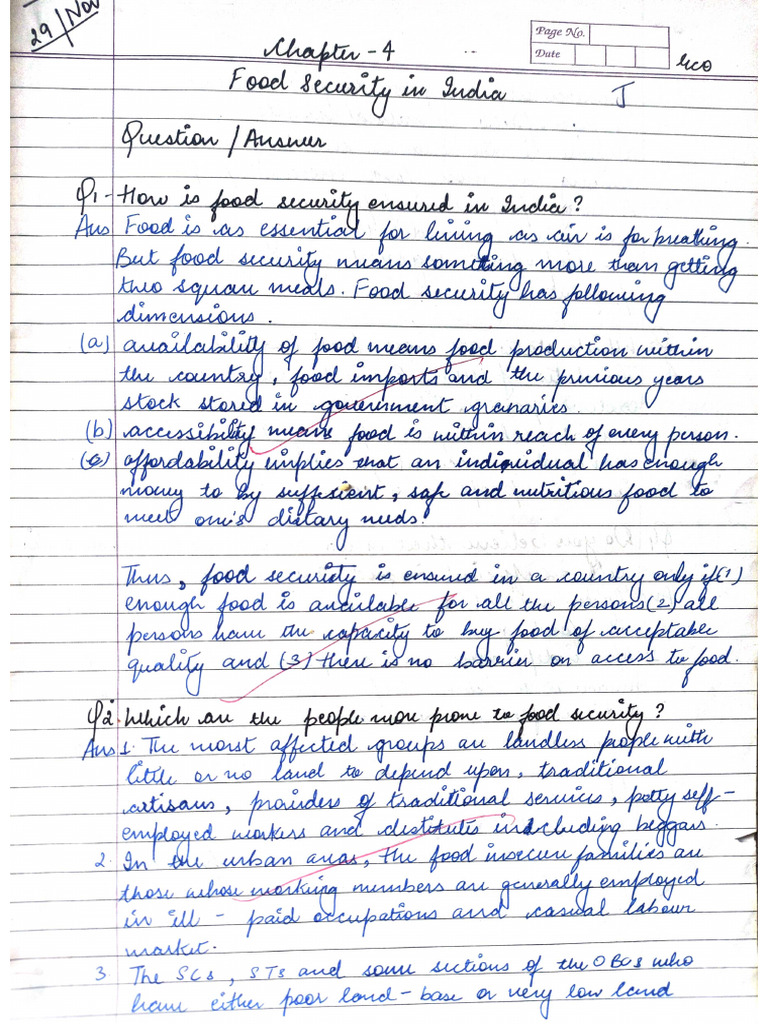 29/Nov
Page No.
Date
Chapter - 4
Eco
Food Security in India
J
Question / Answer
Q1 - How is food security ensured in India?
Ans Food is as essential for living as air is for breathing.
But food security means something more than getting
two square meals. Food security has following
dimensions.
(a) availability of food means food production within
the country, food imports and the previous years
stock stored in government granaries.
(b) accessibility means food is within reach of every person.
(c) affordability implies that an individual has enough
money to by suffesient, safe and nutritious food to
meet one's dietary needs.
Thus, food security is ensured in a country only if (1)
enough food is available for all the persons (2) all
persons have the capacity to buy food of acceptable
quality and (3) there is no barrier on access to food.
Q2. Which are the people more prone to food security?
Ans 1. The worst affected groups are landless people with
little or no land to depend upon, traditional
artisans, providers of traditional services, petty self-
employed workers and destitutes including beggars.
2. In the urban areas, the food insecure families are
those whose working members are generally employed
in ill - paid occupations and casual labour
market.
3 The SCs, STs and some sections of the OBCs who
have either poor land - base or very low land